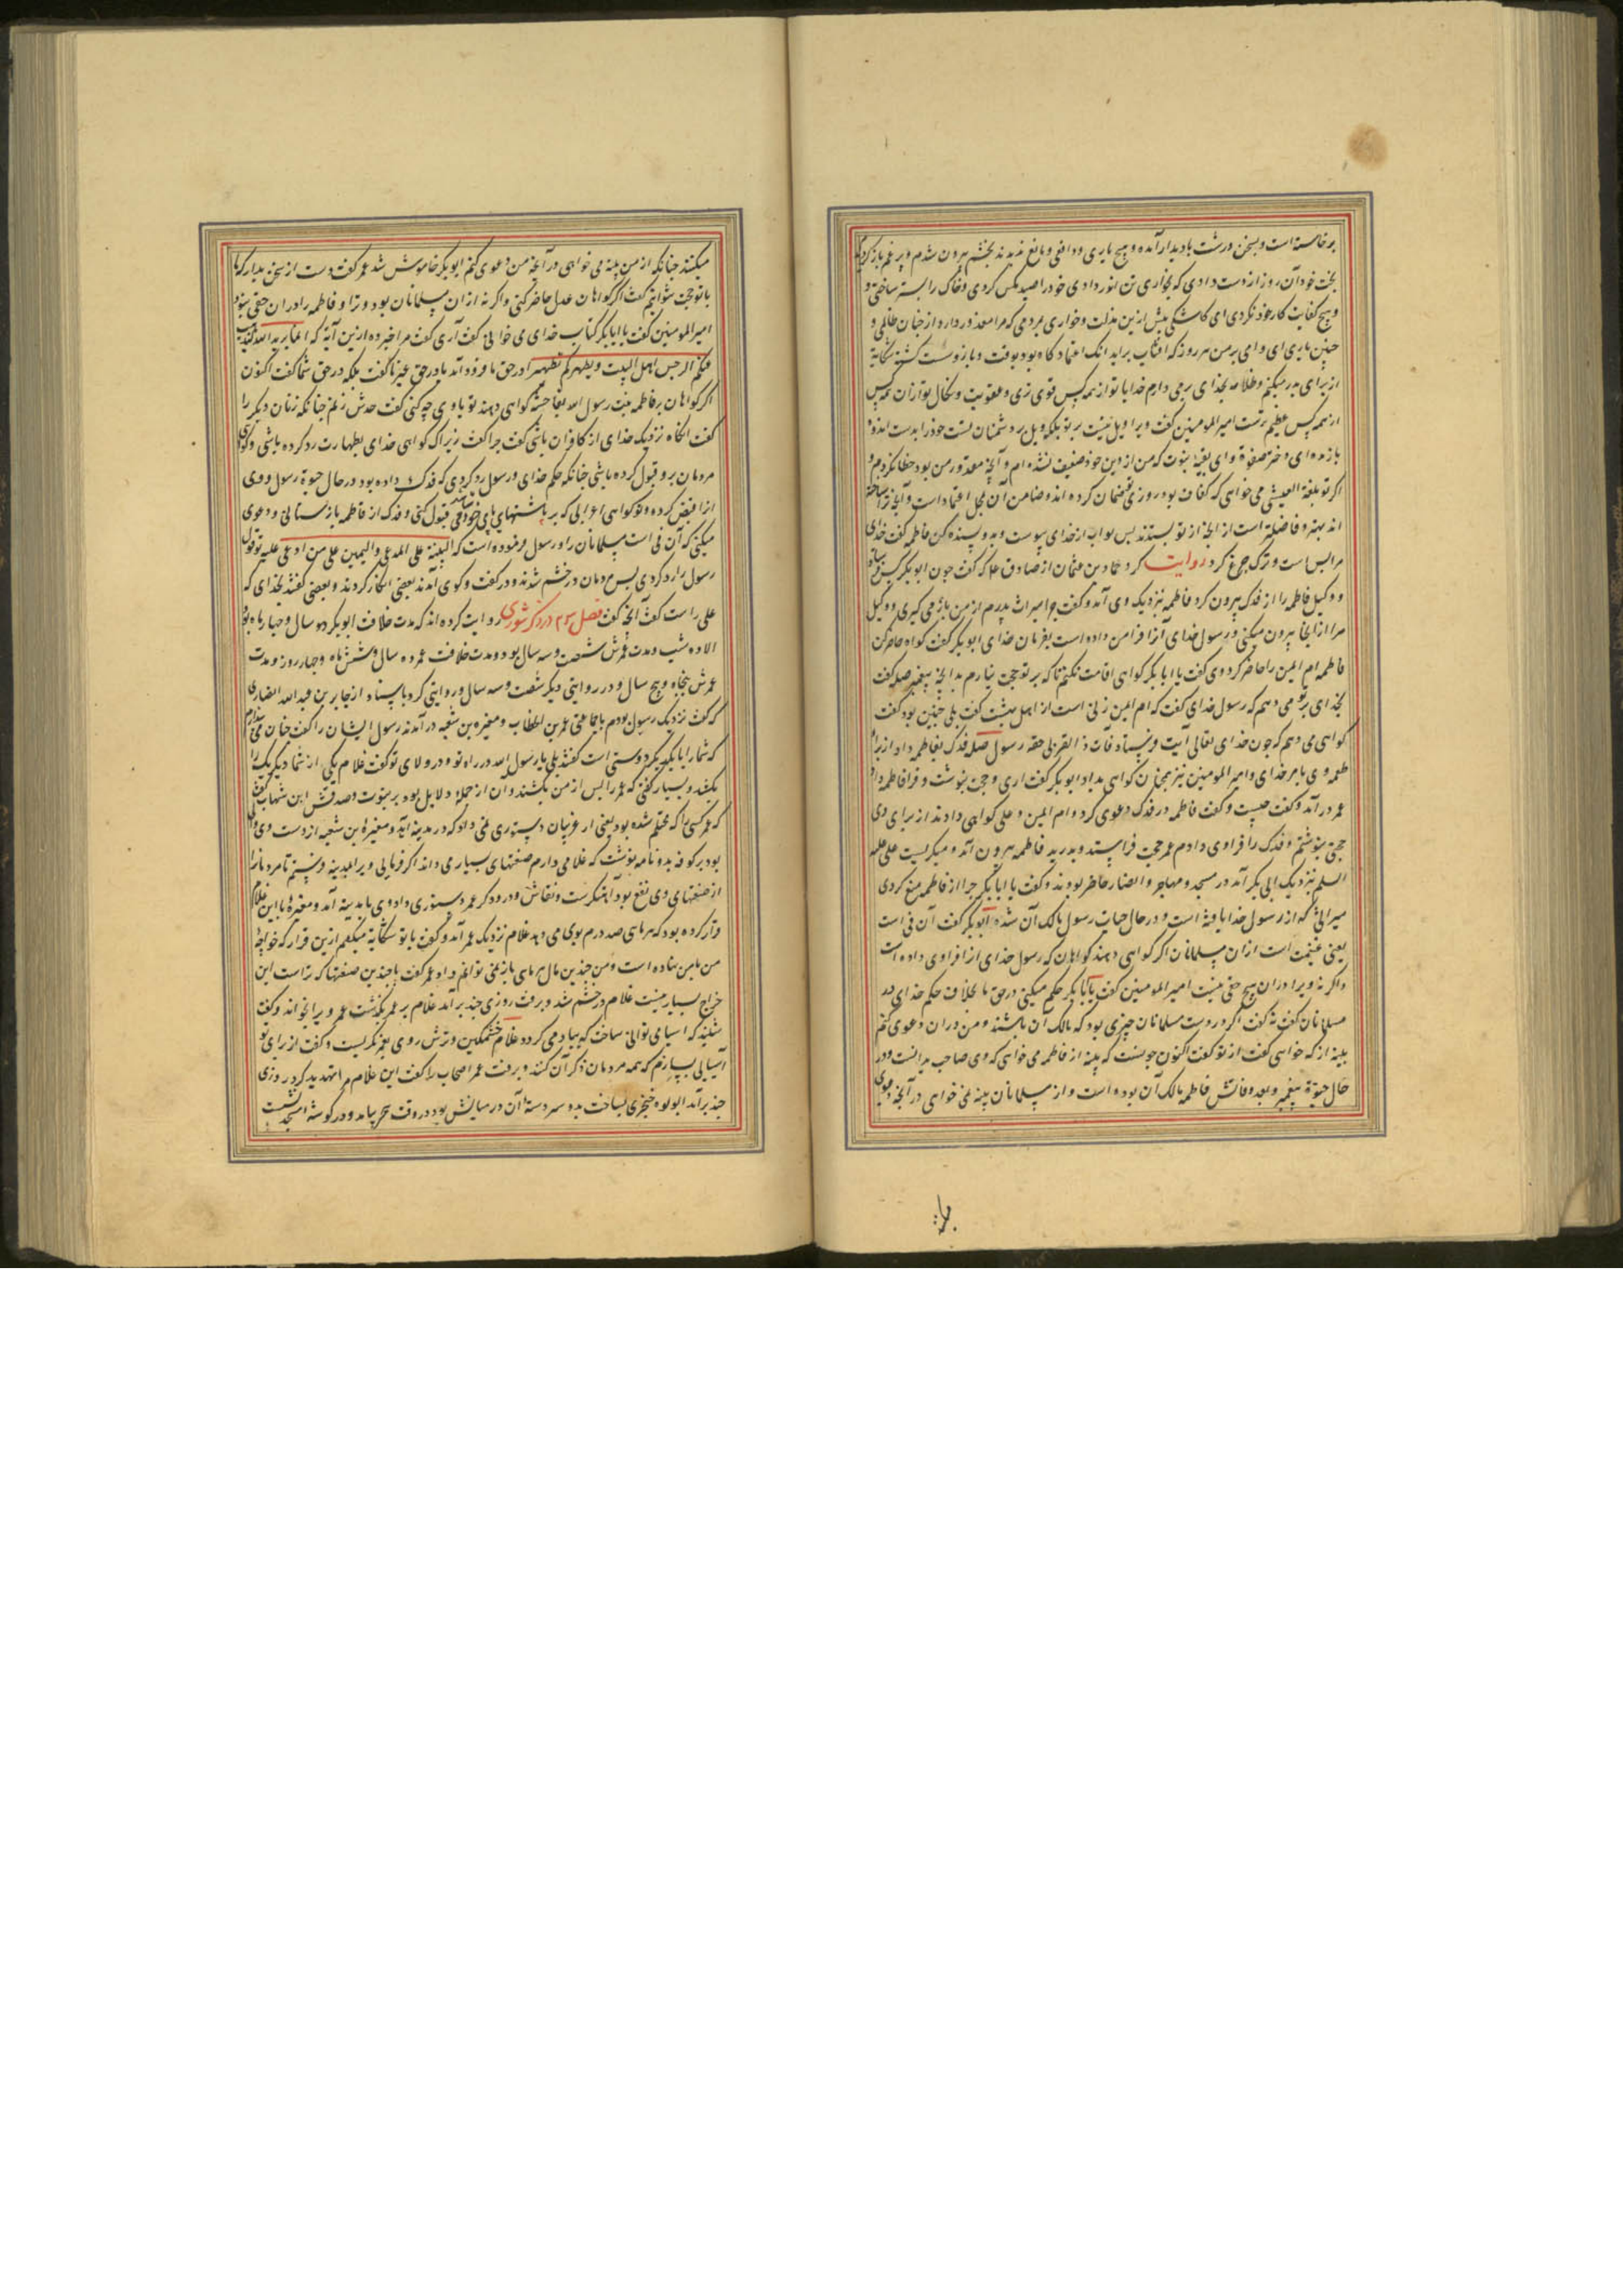 برخاسته است و بسخن درشت بادیدار آمده و هیچ یاری و دافعی و مانع ندیدند بخشم بیرون شدم و بر غم باز کردیم
بخت خود آن روز از دست دادی که بخواری تن در دادی خود را صید مکس کردی و خاک را بستر ساختی و
و هیچ کفایت کار خود نکردی ای کاشکی پیش ازین مذلت و خواری بمردمی که مرا معذور دارد از چنان ظالمی و
چنین یاری ای وای بر من هر روز که افتاب براید انک اعتماد کاه بود بوقت و بازو سست کشت شکایة
از برای پدر میکنم و ظلامه بخدای برمی دارم خدایا تو از همه کس قوی تری و عقوبت و نکال تو از ان همه کس
از همه کس عظیم ترست امیرالمومنین کفت ویرا ویل نیست بر تو بلکه ویل بر دشمنان تست خود را بدست اندوه
بازمده ای دختر صفوة و ای بقیه نبوت که من از دین خود ضعیف نشده ام و آنچه مقدور من بود خطا نکردم و
اکر تو بلغة العیش می خواهی که کفاف بود روزی تو ضمان کرده اند و ضامن آن محل اعتماد است و آنچه ترا ساخته
اند بهتر و فاضلتر است از انچه از تو بستدند پس ثواب از خدای پیوست و بدو بسنده کن فاطمه کفت خدای
مرا بس است و ترک جزع کرد روایت کرد حماد بن عثمان از صادق علیه که کفت چون ابوبکر کس فرستاد
و وکیل فاطمه را از فدک بیرون کرد فاطمه نزدیک وی آمد و کفت چرا میراث پدرم از من باز می کیری و وکیل
مرا از انجا بیرون میکنی و رسول خدای آنرا فرا من داده است بفرمان خدای ابوبکر کفت کواه حاضر کن
فاطمه ام ایمن را حاضر کرد وی کفت یا ابابکر کواهی اقامت نکنم تا که بر تو حجت نیارم بدانچه پیغمبر صلعم کفت
بخدای بر تو می دهم که رسول خدای کفت که ام ایمن زنی است از اهل بهشت کفت بلی چنین بود کفت
کواهی می دهم که چون خدای تعالی آیت فرستاد فآت ذا القربی حقه رسول صلعم فدک بفاطمه داد از برای
طعمه وی بامر خدای و امیرالمومنین نیز همچنان کواهی بداد ابوبکر کفت اری و حجتی بنوشت و فرا فاطمه داد
عمر در آمد و کفت چیست و کفت فاطمه در فدک دعوی کرد و ام ایمن و علی کواهی دادند از برای وی
حجتی بنوشتم و فدک را فرا وی دادم عمر حجت فراستد و بدرید فاطمه بیرون آمد و میکریست علی علیه
السلم نزدیک ابی بکر آمد در مسجد و مهاجر و انصار حاضر بودند و کفت یا ابابکر چرا از فاطمه منع کردی
میراثی که از رسول خدا یافته است و در حال حیات رسول مالک آن شده ابوبکر کفت آن فی است
یعنی غنیمت است ازان مسلمانان اکر کواهی دهند کواهان که رسول خدای انرا فرا وی داده است
و اکر نه ویرا دران هیچ حقی نیست امیرالمومنین کفت یا ابابکر حکم میکنی در حق ما بخلاف حکم خدای در
مسلمانان کفت نه کفت اکر در دست مسلمانان چیزی بود که مالک آن باشند و من دران دعوی کنم
بینه از که خواهی کفت از تو کفت اکنون چونست که بینه از فاطمه می خواهی که وی صاحب ید است و در
حال حیوة پیغمبر و بعد وفاتش فاطمه مالک آن بوده است و از مسلمانان بینه نمی خواهی در آنچه دعوی
میکنند چنانکه از من بینه می خواهی در آنچه من دعوی کنم ابوبکر خاموش شد عمر کفت دست از سخن بدار که ما
با تو حجت نتوانیم کفت اکر کواهان عدل حاضر کنی و اکر نه ازان مسلمانان بود و ترا و فاطمه را دران حقی نبود
امیرالمومنین کفت یا ابابکر کتاب خدای می خوانی کفت آری کفت مرا خبر ده ازین آیة که انما یرید الله لیذهب
عنکم الرجس اهل البیت و یطهرکم تطهیرا در حق ما فرود آمد یا در حق غیر ما کفت بلکه در حق شما کفت اکنون
اکر کواهان بر فاطمه بنت رسول الله بفاحشه کواهی دهند تو با وی چه کنی کفت حدش زنم چنانکه زنان دیکر را
کفت انکاه نزدیک خدای از کافران باشی کفت چرا کفت زیراک کواهی خدای بطهارت رد کرده باشی و کواهی
مردمان برو قبول کرده باشی چنانکه حکم خدای و رسول رد کردی که فدک داده بود در حال حیوة رسول و وی
انرا قبض کرده و تو کواهی اعرابی که بر پاشنهای پای خود قبول کنی و فدک از فاطمه باز ستانی و دعوی
میکنی که آن فی است مسلمانان را و رسول فرموده است که البینة علی المدعی و الیمین علی من ادعی علیه تو قول
رسول را رد کردی پس مردمان در خشم شدند و در کفت و کوی آمدند بعضی انکار کردند و بعضی کفتند بخدای که
علی راست کفت آنچه کفت فصل سیم در ذکر شوری روایت کرده اند که مدت خلافت ابوبکر دو سال و چهار ماه بود
الا ده شب و مدت عمرش شصت و سه سال بود و مدت خلافت عمر ده سال و شش ماه و چهار روز و مدت
عمرش پنجاه و پنج سال و در روایتی دیکر شصت و سه سال و روایتی کرد باسناد از جابر بن عبد الله انصاری
که کفت نزدیک رسول بودم با جماعتی عمر بن الخطاب و مغیره بن شعبه در آمدند رسول ایشان را کفت چنان می پندارم
که شما را با یکدیکر دوستی است کفتند بلی یا رسول الله در راه تو و در ولای تو کفت غلام یکی از شما دیکر یک را
بکشد و بسیار کفتی که عمر را پس از من بکشند و ان از جمله دلایل بود بر نبوت و صدقش ابن شهاب کفت
که عمر کسی را که محتلم شده بود یعنی از عربیان دستوری نمی داد که در مدینه آید و مغیرة بن شعبه از دست وی والی
بود بر کوفه بدو نامه نوشت که غلامی دارم صنعتهای بسیار می داند اکر فرمایی ویرا بمدینه فرستم تا مردمان را
از صنعتهای وی نفع بود آهنکرست و نقاش و درودکر عمر دستوری داد وی با مدینه آمد و مغیرة با این غلام
قرار کرده بود که هر ماهی صد درم بوی می دهد غلام نزدیک عمر آمد و کفت با تو شکایة میکنم ازین قرار که خواجه
من با من نهاده است و من چندین مال هر ماهی باز نمی توانم داد عمر کفت با چندین صنعتها که تراست این
خراج بسیار نیست غلام در خشم شد و برفت روزی چند برآمد غلام بر عمر بکذشت عمر ویرا بخواند و کفت
شنیدم که اسیا می توانی ساخت که بباد می کردد غلام خشمکین و ترش روی بعمر نکریست و کفت از برای تو
آسیایی بسازم که همه مردمان ذکر آن کنند و برفت عمر اصحاب را کفت این غلام مرا تهدید کرد روزی
چند برآمد ابولولوه خنجری بساخت بدو سر دسته آن در میانش بود در وقت سحر بیامد و در کوشه مسجد بنشست